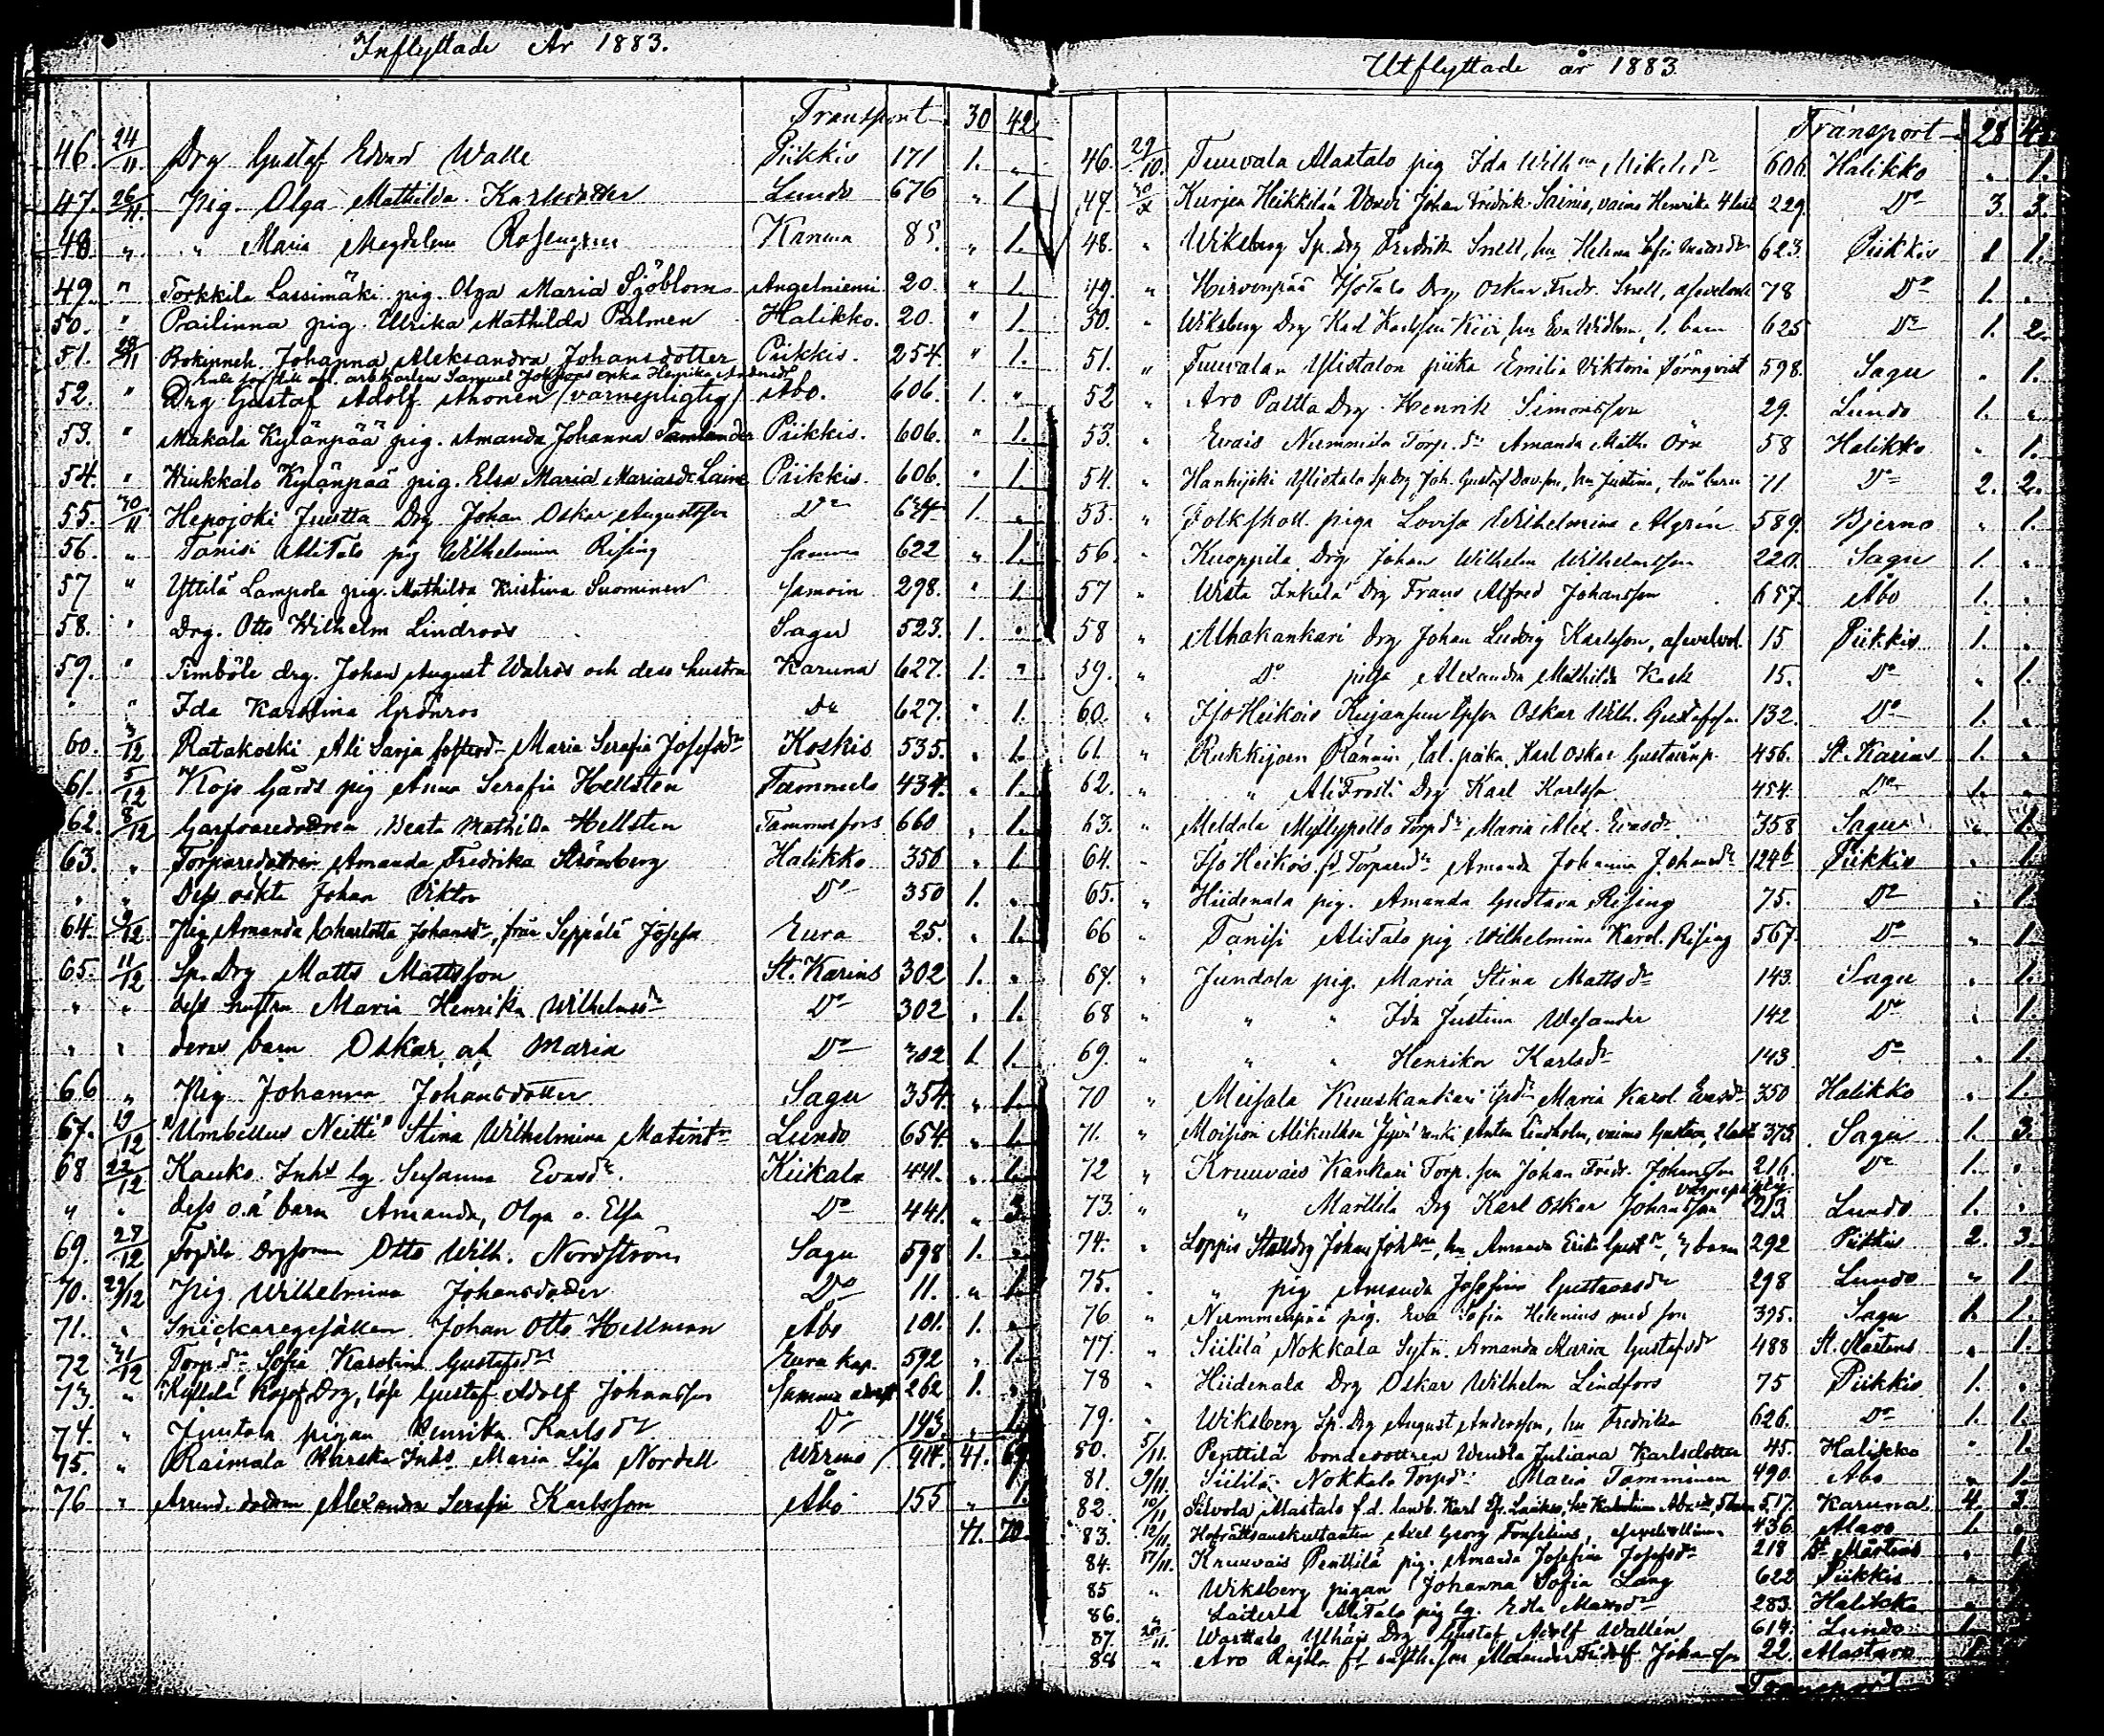 Inflyttade År 1883.
Transport 30 42
46. 24/11 Drg Gustaf Edvard Walle Piikkis 171 1. "
47. 26/11 Pig. Olga Mathilda Karlsdotter Lundo 676 " 1
48. " " Maria Magdalena Rosengren Karuna 85. " 1.
49. " Torkkila Lassimäki pig. Olga Maria Sjöblom Angelniemi 20 " 1.
50. " Pailinna pig. Ulrika Mathilda Palmen Halikko. 20 " 1.
51. 29/11 Johanna Aleksandra Johansdotter Piikkis. 254. " 1.
52. " Drg Gustaf Adolf Ahonen (värnepligtig) Åbo. 606. 1. "
53. " Makala Kylänpää pig. Amanda Johanna Samlander Piikkis. 606. " 1.
54. " Wiukkala Kylänpää pig. Elsa Maria Mariasdr Laine Piikkis. 606. " 1
55. 30/11 Hepojoki Juutta Drg Johan Oskar Augustsson Do 634 1. "
56. " Tanisi AliTalo pig Wilhelmina Rising Samma 622 " 1.
57 " Yttilä Lampola pig. Mathilda Kristina Suominen samoin 298. " 1.
58. " Drg. Otto Wilhelm Lindroos Sagu 523. 1. "
59. " Timböle drg. Johan August Walros och dess hustru Karuna 627. 1. "
" " Ida Karolina Grönros do 627. " 1.
60. 3/12 Ratakoski Ali Sarja Maria Serafia Josefsdr Koskis 535. " 1.
61. 5/12 Kojo Gårds pig Anna Serafia Hellsten Tammela 434. " 1.
62. 8/12 Garfvaredottren Beata Mathilda Hellsten Tamonsfors 660 " 1.
63. " Torparedottren Amanda Fredrika Strömberg Halikko 350 " 1
" " Dess oäkta Johan Viktor Do 350 1. "
64. 9/12 Pig Amanda Charlotta Johansdr, från Seppälä Eura 25. " 1.
65. 11/12 Sp. Drg Matts Mattsson St. Karins 302 1. "
" " dess hustru Maria Henrika Wilhelmsdr Do 302 " 1.
" " deras barn Oskar och Maria Do 302 1 1.
66 " Pig Johanna Johansdotter Sagu 354. " 1.
67. 19/12 "Umbellus Neitti" Stina Wilhelmina Lundo 654 " 1.
68 22/12 Kauko Inhs Susanna Evasdr. Kiikala 441. " 1.
" " dess o.ä barn Amanda, Olga o. Elsa Do 441. " 3.
69. 28/12 Otto Wilh. Nordström Sagu 598 1. "
70. 29/12 Pig Wilhelmina Johansdotter Do 11. " 1.
71. " Snickaregesällen Johan Otto Hellman Åbo 101. 1. "
72 31/12 Torp.dr Sofia Karolina Gustafsdr Eura kap. 592 " 1.
73. " Drg, Gustaf Adolf Johansson Samma 262 1. "
74. " Juntola pigan Henrika Karlsdr Do 143. " 1.
75. " Raimala Inhs Maria Lisa Nordell Wirmo 414. 41. 69.
76 " Alexandra Serafia Karlsson Åbo 155 " 1.
41. 70.
Utflyttade år 1883.
Transport 28
46. 29/10. Tuuvala Alastalo pig Ida Wilhna 606. Halikko " 1.
47. Kurjen Heikkilän Johan Fredrik Sainio, vaimo Henrika 4 last 229. Do 3. 3.
48. " Wiksberg Sp. drg Fredrik Snell, hu Helena Sofia 623. Piikkis 1 1.
49. " Hirvonpää IsoTalo Drg Oskar Fredr. Snell, 78 Do 1. "
50. " Wiksberg Drg Karl Karlsson hu Eva 1 barn 625 Do 1. 2.
51. " Tuuvalan Ylistalon piika Emilia Viktoria Törnqvist 598. Sagu " 1.
52 " Aro Paltta Drg. Henrik Simonsson 29. Lundo 1. "
53. " Evais Nummila Torp.dr Amanda Math. Örn 58 Halikko " 1.
54. " Hanhijoki Ylistalo Sp.drg Joh. Gustaf hu Justina, två barn 71 Do 2. 2.
55. " Folkskoll. piga Lovisa Wilhelmina Algrén 589. Bjerno " 1.
56 " Kuoppila Drg Johan Wilhelm Wilhelmsson 220. Sagu 1. "
57 " Wista Inkelä Drg Frans Alfred Johansson 657. Åbo 1. "
58 " Alhakankari Drg Johan Ludvig Karlsson, 15 Piikkis 1. "
59. " Do piga Alexandra Mathilda Kask 15. Do " 1.
60. " IsoHeikois Kujansuu Oskar Wilh. Gustafsson 132. Do 1. "
61. " Rukkijoen Rännin, tal. poika Karl Oskar 456. St. Karins 1. "
62. " " AliFrosti Drg Karl Karlsson 454. Do 1. "
63. " Meldola Myllypello Torpdr Maria Alex. Evasdr. 358 Sagu " 1.
64. " IsoHeikois fd Torparedr Amanda Johanna Johansdr 124b Piikkis " 1.
65. " Hiidenala pig. Amanda Gustava Rising 75. Do " 1
66 " Tanisi AliTalo pig Wilhelmina Karol. Rising 567. Do " 1.
67. " Jundola pig. Maria Stina Mattsdr 143. Sagu " 1.
68 " " " Ida Justina Wesander 142 Do " 1.
69. " " " Henrika Karlsdr 143 Do " 1.
70 " Meisala Kuuskankari Maria Karol. Evasdr 350 Halikko " 1.
71. " Moision Mikkulhon Anton Lindholm, vaimo Gustava, 2 last 373. Sagu 1. 3.
72 " Kruuvais Kankari Torp. son Johan Fredr. Johansson 216. Do 1. "
73. " " Marttila Drg Karl Oskar Johansson 213. Lundo 1. "
74. " Loppis Stalldrg Johan hu Amanda Erika 3 barn 292 Piikkis 2. 3.
75. " " pig Amanda Josefina Gustavasdr 298 Lundo " 1.
76 " Nummenpää pig. Eva Sofia Helenius med son 395. Sagu 1. 1.
77. " Siililä Nokkala Sytn. Amanda Maria Gustafsdr 488 St. Mårtens " 1.
78 " Hiidenala Drg Oskar Wilhelm Lindfors 75 Piikkis 1. "
79. " Wiksberg Sp. Drg August Andersson, hu Fredrika 626. Do 1. 1.
80. 5/11. Penttilä bondedottren Wendla Juliana Karlsdotter 45. Halikko " 1.
81. 9/11. Siililä Nokkala Torpdr Maria Tamminen 490. Åbo " 1.
82. 10/11 Silvola Alastalo f.d. landb. Karl 5 barn 517. Karuna 4. 3.
83. 12/11. Hofrättsauskultanten Axel Georg 436. Alavo 1. "
84. 17/11. Kruuvais Penttilä pig. Amanda Josefina Josefsdr 218 St Mårtens " 1
85 " Wiksberg pigan Johanna Sofia Lang 622 Piikkis "
86. " Laiterla AliTalo pig Edla 283. Halikko "
87. 20/11. Warttala Ylhäis Drg Gustaf Adolf Wallén 614. Lundo 1.
88 " Aro Rajala Fridolf Johansson 22 Alastaro 1.
Transport